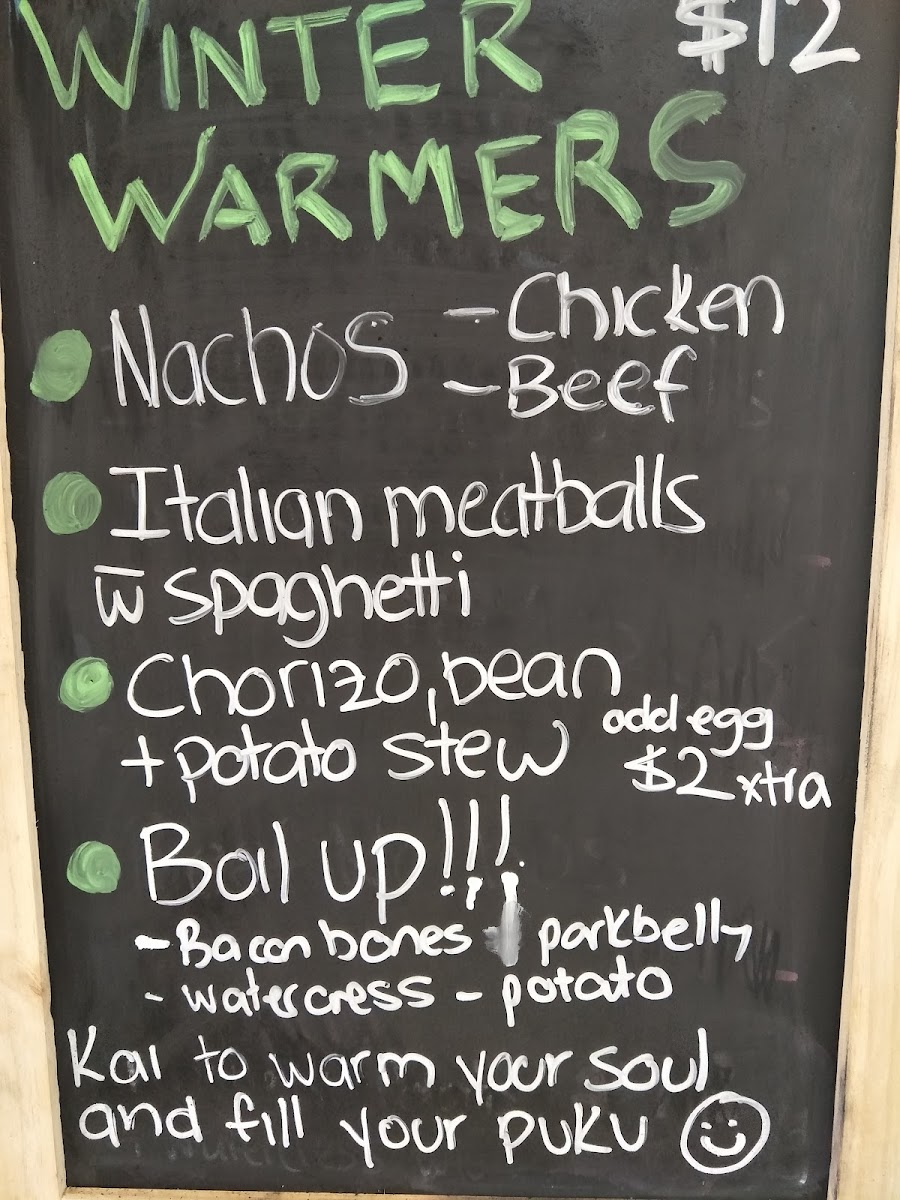 WINTER $12
WARMERS
Nachos - Chicken
- Beef
Italian meatballs
w̅ spaghetti
Chorizo, bean
+ potato stew
add egg
$2 xtra
Boil up!!!
- Bacon bones porkbelly
- watercress - potato
Kai to warm your soul
and fill your puku ☺